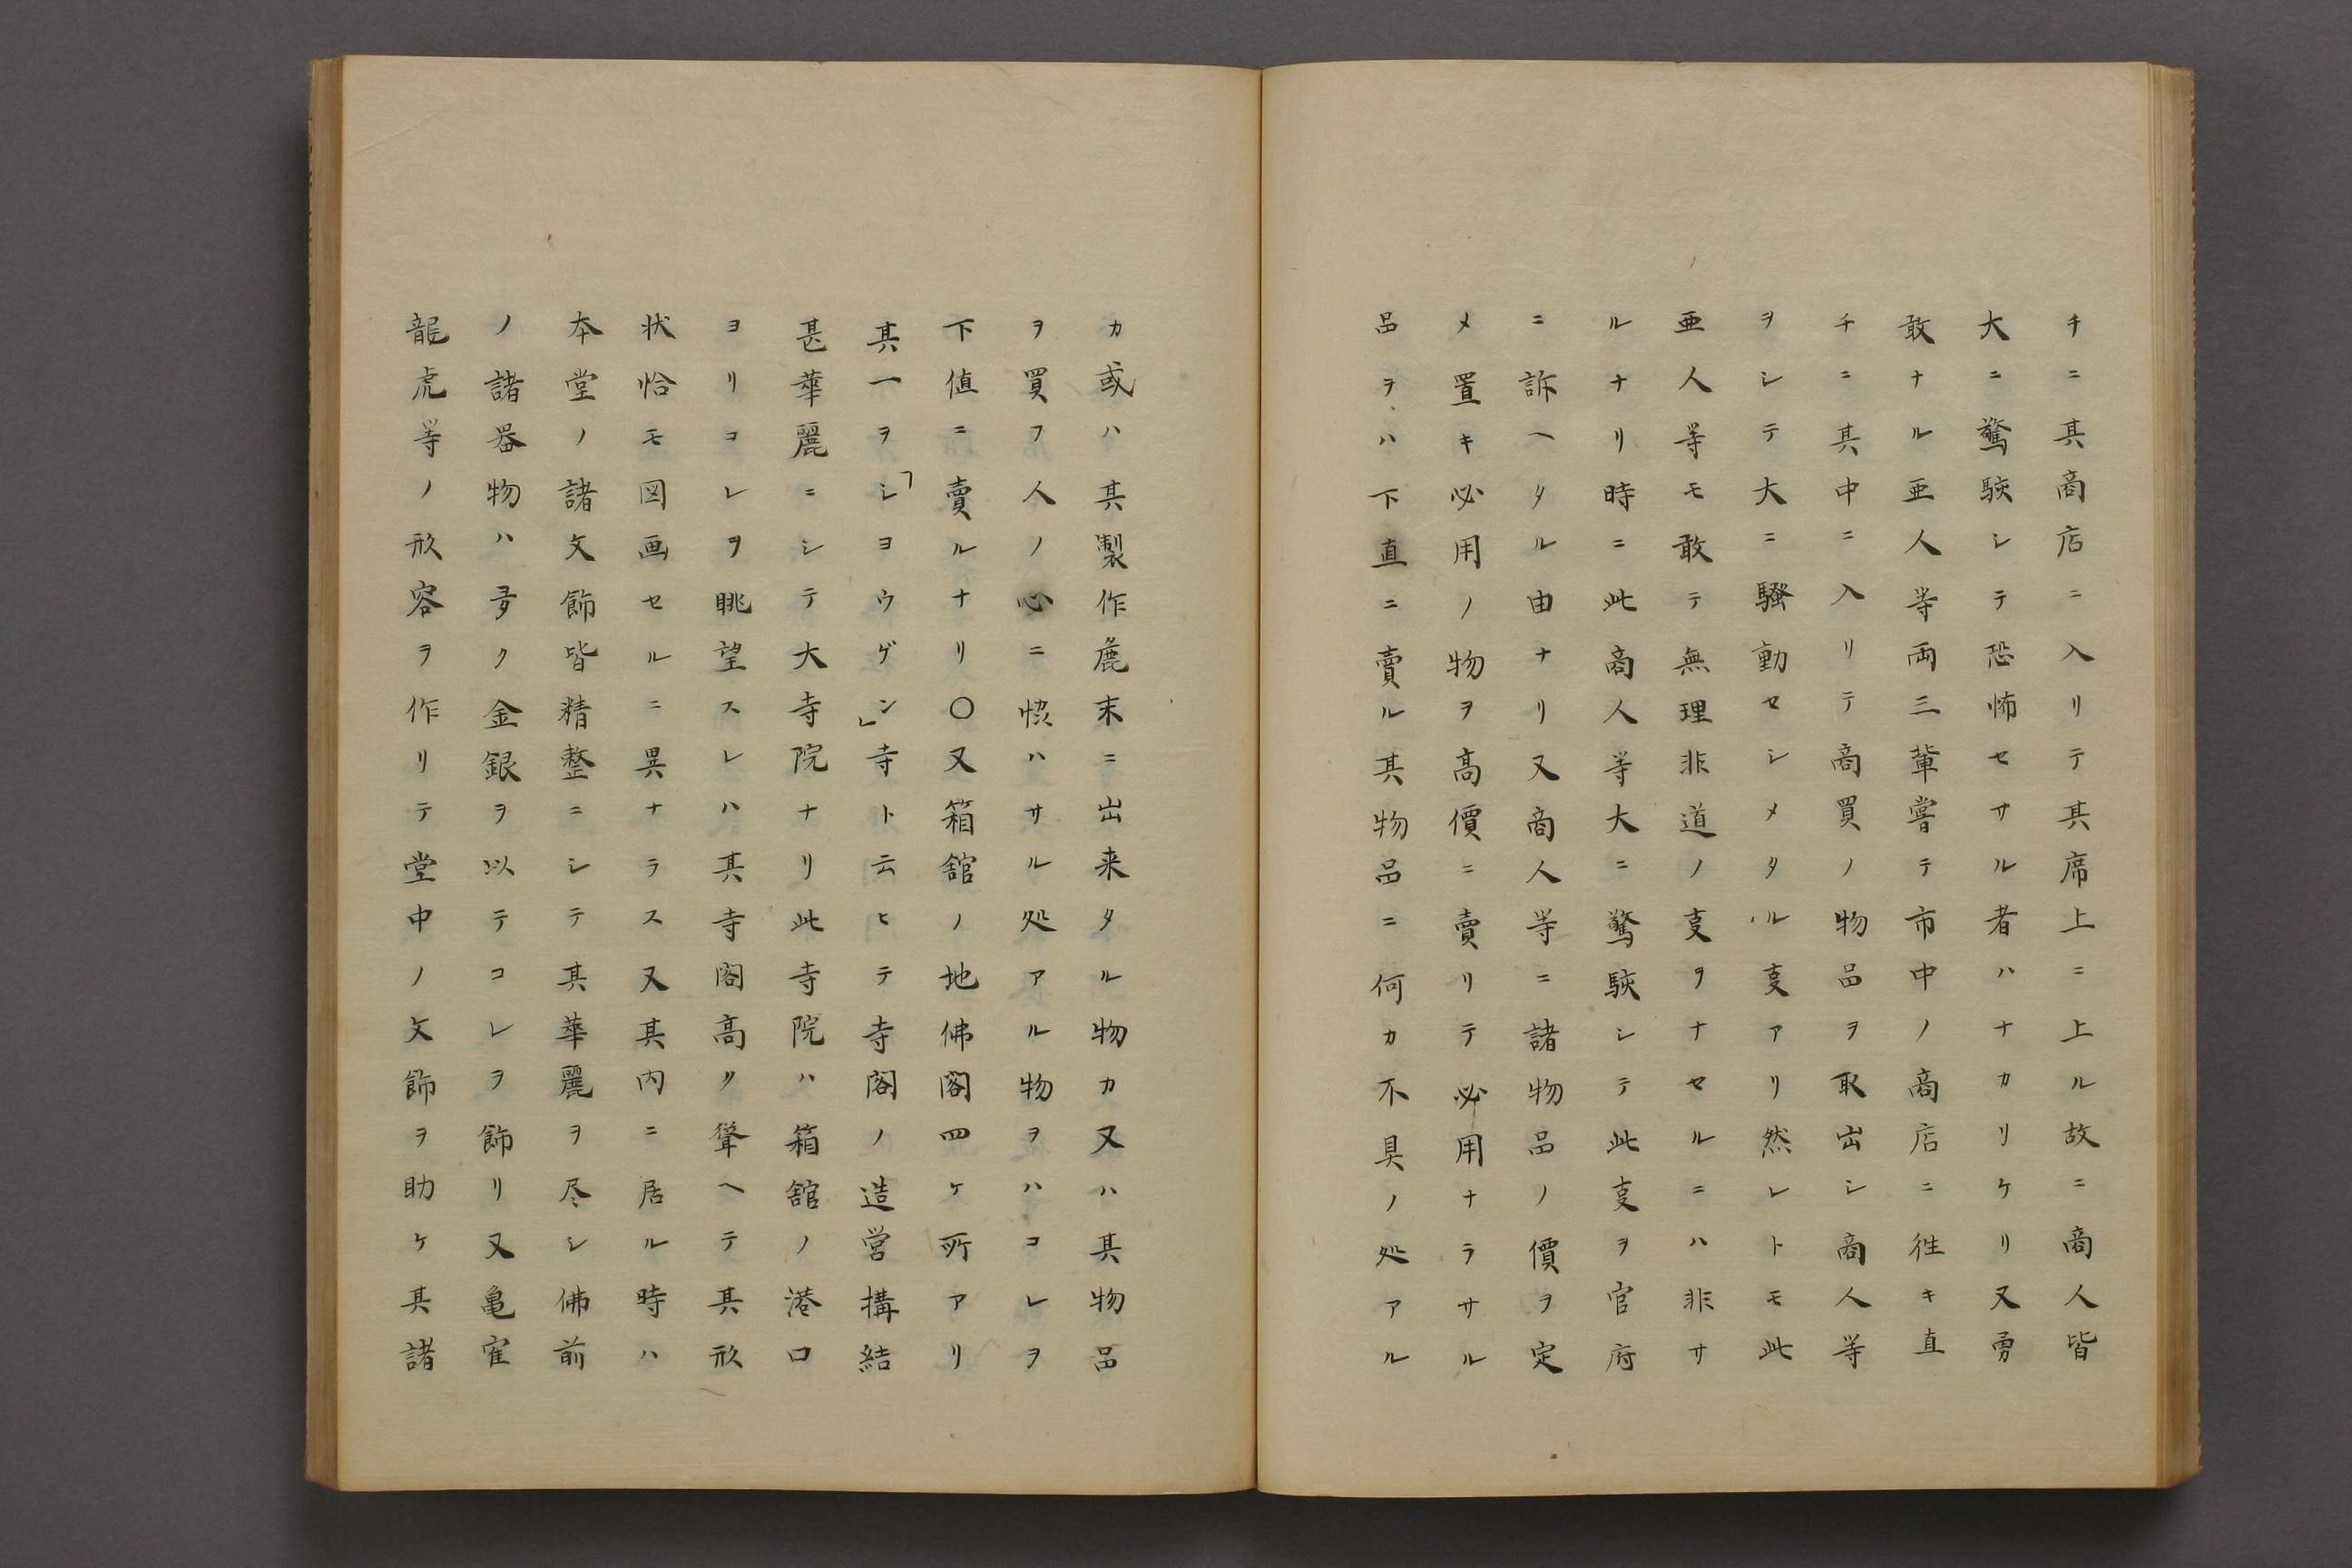 チニ其商店ニ入リテ其席上ニ上ル故ニ商人皆
大ニ驚駭シテ恐怖セサル者ハナカリケリ又勇
敢ナル亜人等両三輩嘗テ市中ノ商店ニ往キ直
チニ其中ニ入リテ商買ノ物品ヲ取出シ商人等
ヲシテ大ニ騒動セシメタル㕝アリ然レトモ此
亜人等モ敢テ無理非道ノ㕝ヲナセルニハ非サ
ルナリ時ニ此商人等大ニ驚駭シテ此㕝ヲ官府
ニ訴ヘタル由ナリ又商人等ニ諸物品ノ價ヲ定
メ置キ必用ノ物ヲ高價ニ賣リテ必用ナラサル
品ヲハ下直ニ賣ル其物品ニ何カ不具ノ処アル
カ或ハ其製作麁末ニ出来タル物カ又ハ其物品
ヲ買フ人ノ心ニ愜ハサル処アル物ヲハコレヲ
下値ニ賣ルナリ〇又箱舘ノ地佛閣四ケ所アリ
其一ヲ「シヨウゲン」寺ト云ヒテ寺閣ノ造営搆結
甚華麗ニシテ大寺院ナリ此寺院ハ箱舘ノ港口
ヨリコレヲ眺望スレハ其寺閣高ク聳ヘテ其形
状恰モ図画セルニ異ナラス又其内ニ居ル時ハ
本堂ノ諸文飾皆精整ニシテ其華麗ヲ尽シ佛前
ノ諸器物ハ多ク金銀ヲ以テコレヲ飾リ又亀寉
龍虎等ノ形容ヲ作リテ堂中ノ文飾ヲ助ケ其諸